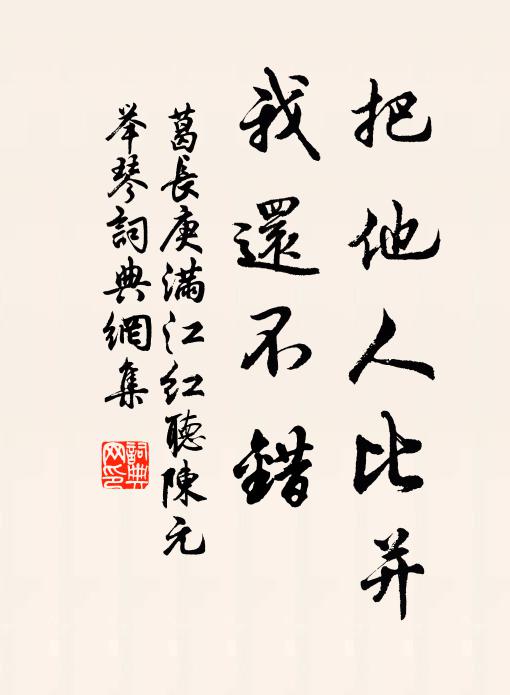 把他人比并
我還不錯
葛長庚满江红聽陳元
举琴詞典網集
詞典
网印